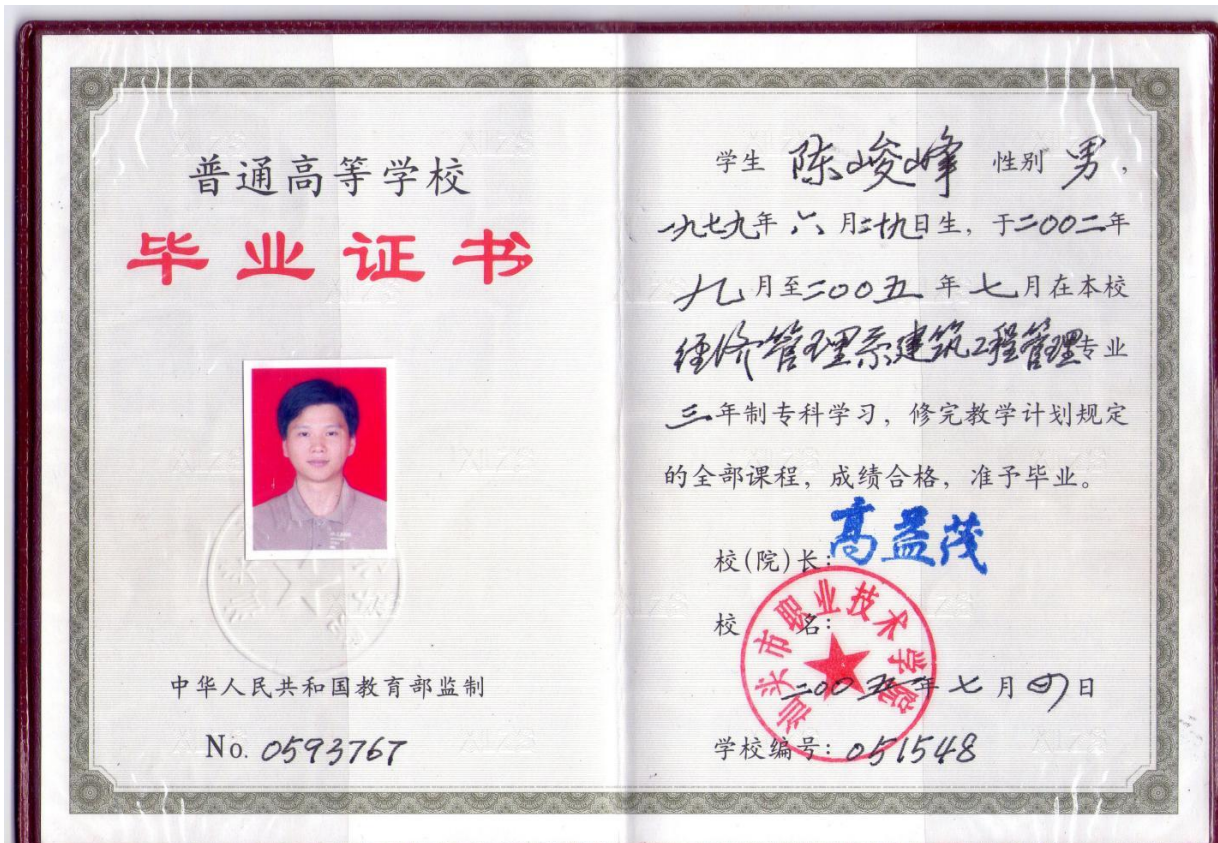 普通高等学校
毕业证书
中华人民共和国教育部监制
No. 0593767
学生 陈峻峰 性别 男,
一九七九年 六 月二十九日生, 于二00二年
九 月至二00五 年 七 月在本校
经济管理系建筑工程管理专业
三 年制专科学习, 修完教学计划规定
的全部课程, 成绩合格, 准予毕业。
校(院)长: 高益茂
校 名:
汕头市职业技术学院
二00五年 七 月 四 日
学校编号: 051548